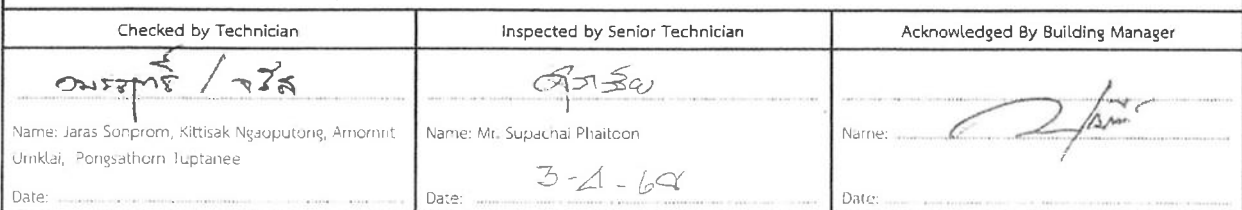 Checked by Technician
Inspected by Senior Technician
Acknowledged By Building Manager
อมรฤทธิ์ / จรัส
ศุภชัย
Name: Jaras Sonprom, Kittisak Ngaoputong, Amornrit
Umklai, Pongsathorn Tuptanee
Date:
Name: Mr. Supachai Phaitoon
Date:
Name:
Date: